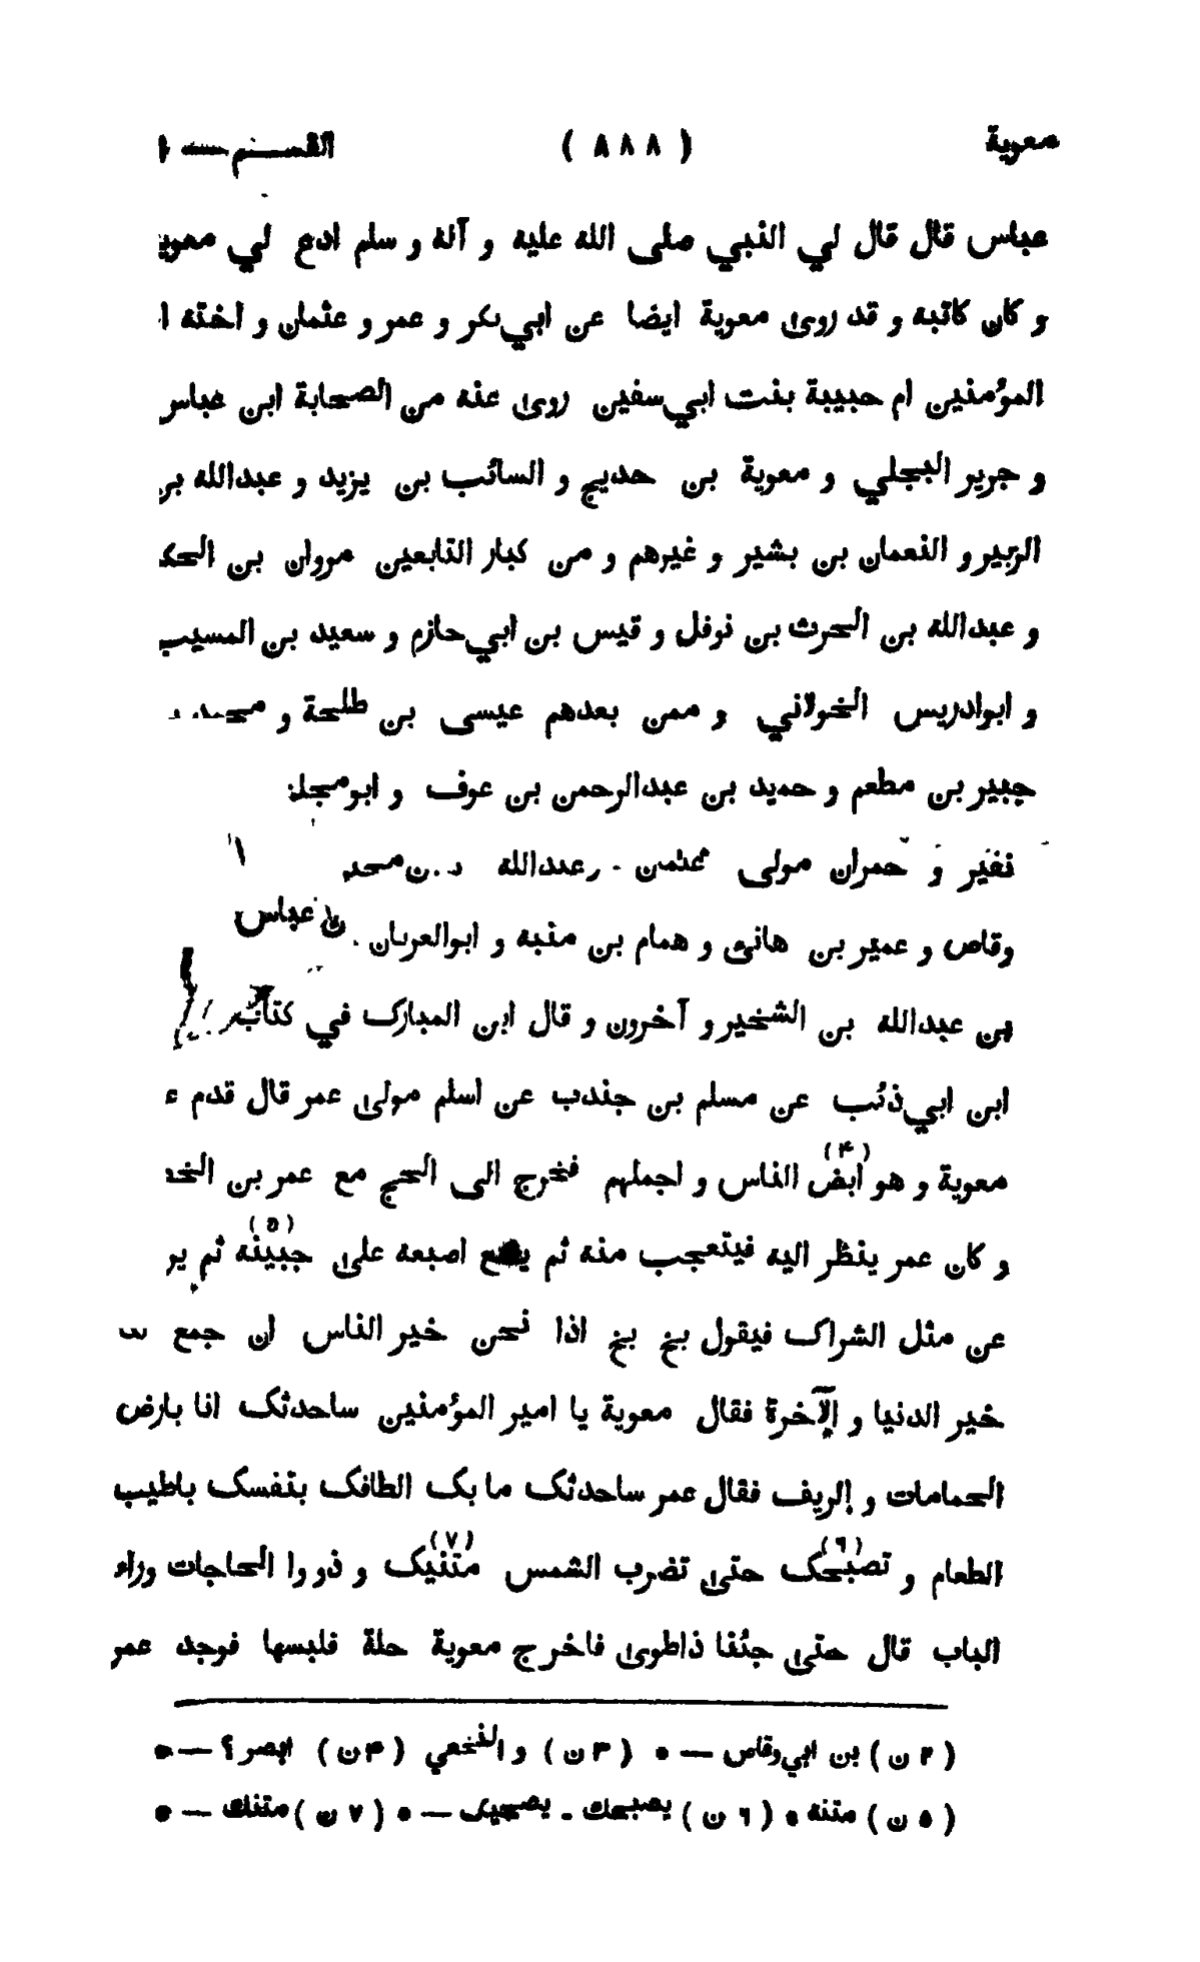 معوية ( ٨٨٨ ) القسم — ١
عباس قال قال لي النبي صلى الله عليه و آله و سلم ادع لي معوية
و كان كاتبه و قد روى معوية ايضا عن ابي بكر و عمر و عثمان و اخته ا
المؤمنين ام حبيبة بنت ابي سفين روى عنه من الصحابة ابن عباس
و جرير البجلي و معوية بن حديج و السائب بن يزيد و عبدالله بن
الزبير و النعمان بن بشير و غيرهم و من كبار التابعين مروان بن الحك
و عبدالله بن الحرث بن نوفل و قيس بن ابي حازم و سعيد بن المسيب
و ابوادريس الخولاني و ممن بعدهم عيسى بن طلحة و محمد
جبير بن مطعم و حميد بن عبدالرحمن بن عوف و ابومجلز
نفير و حمران مولى عثمن عبدالله بن محير
وقاص و عمير بن هانئ و همام بن منبه و ابوالعريان بن عباس
بن عبدالله بن الشخير و آخرون و قال ابن المبارك في كتاب
ابن ابي ذئب عن مسلم بن جندب عن اسلم مولى عمر قال قدم ع
معوية و هو ابض (۴) الناس و اجملهم فخرج الى الحج مع عمر بن الخ
و كان عمر ينظر اليه فيتعجب منه ثم يضع اصبعه على جبينه (٥) ثم ير
عن مثل الشراك فيقول بخ بخ اذا نحن خير الناس ان جمع
خير الدنيا و الآخرة فقال معوية يا امير المؤمنين ساحدثك انا بارض
الحمامات و الريف فقال عمر ساحدثك ما بك الطافك بنفسك باطيب
الطعام و تصبحك (٦) حتى تضرب الشمس متنيك (٧) و ذو را الحاجات وراء
الباب قال حتى جئنا ذاطوى فاخرج معوية حلة فلبسها فوجد عمر
( ٢ ن ) بن ابي وقاص — * ( ٣ ن ) و النخعي ( ۴ ن ) ابصر ؟ — *
( ٥ ن ) متنه * ( ٦ ن ) يصبحك - يصحبك — * ( ٧ ن ) متنك — *